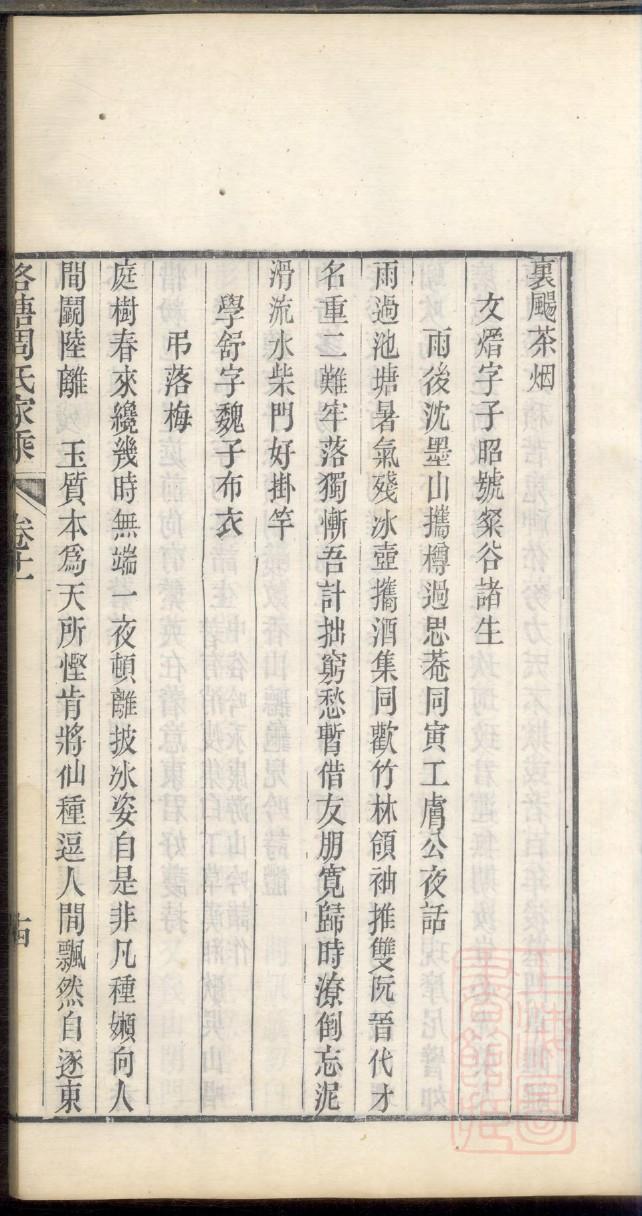 裏颺茶烟
文熸字子昭號粲谷諸生
雨後沈墨山攜樽過思菴同寅工膚公夜話
雨過池塘暑氣殘冰壺攜酒集同歡竹林領袖推雙阮晉代才
名重二難牢落獨慚吾計拙窮愁暫借友朋寬歸時潦倒忘泥
滑流水柴門好掛竿
學舒字魏子布衣
弔落梅
庭樹春來纔幾時無端一夜頓離披冰姿自是非凡種嬾向人
間鬭陸離　玉質本爲天所慳肯將仙種逗人間飄然自逐東
洛塘周氏家乘
卷十一
十四